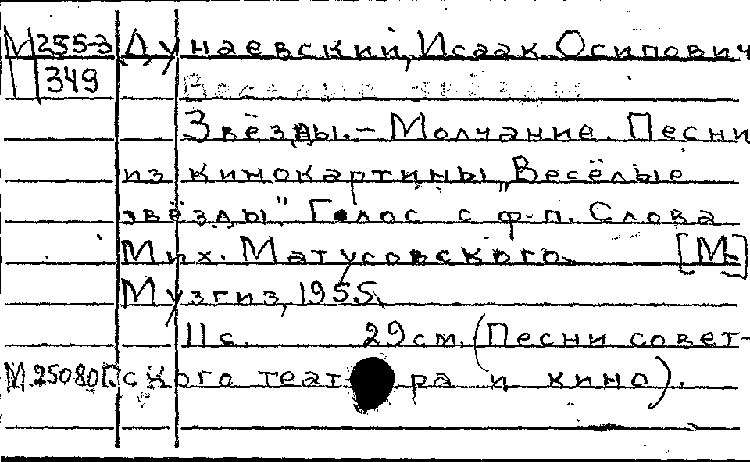 М 255-3 Дунаевский, Исаак Осипович
349 Веселые звёзды
Звёзды. – Молчание. Песни
из кинокартины „Весёлые
звёзды". Голос с ф-п. Слова
Мих. Матусовского. [М.]
Музгиз, 1955.
11 с. 29 см. (Песни совет-
ского театра и кино).